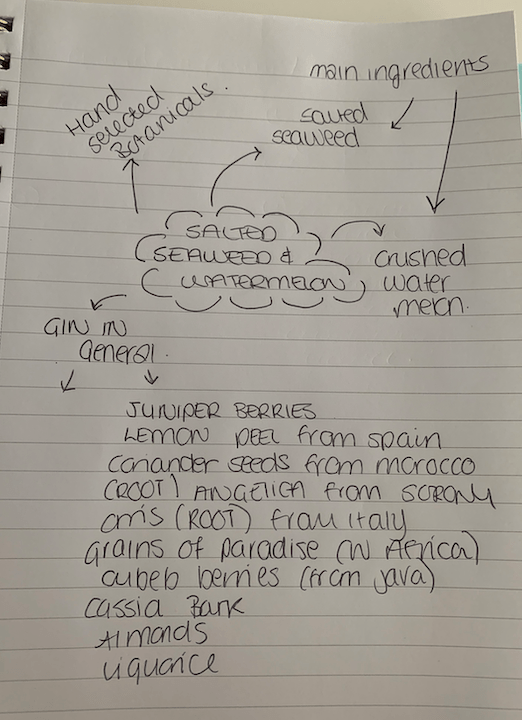 main ingredients
Hand
selected
Botanicals.
salted
seaweed
SALTED
SEAWEED &
WATERMELON
crushed
water
melon.
GIN IN
General.
JUNIPER BERRIES
LEMON PEEL from spain
coriander seeds from morocco
(ROOT) ANGELICA from
orris (ROOT) from Italy
grains of paradise (W Africa)
cubeb berries (from java)
cassia Bark
Almonds
Liquorice